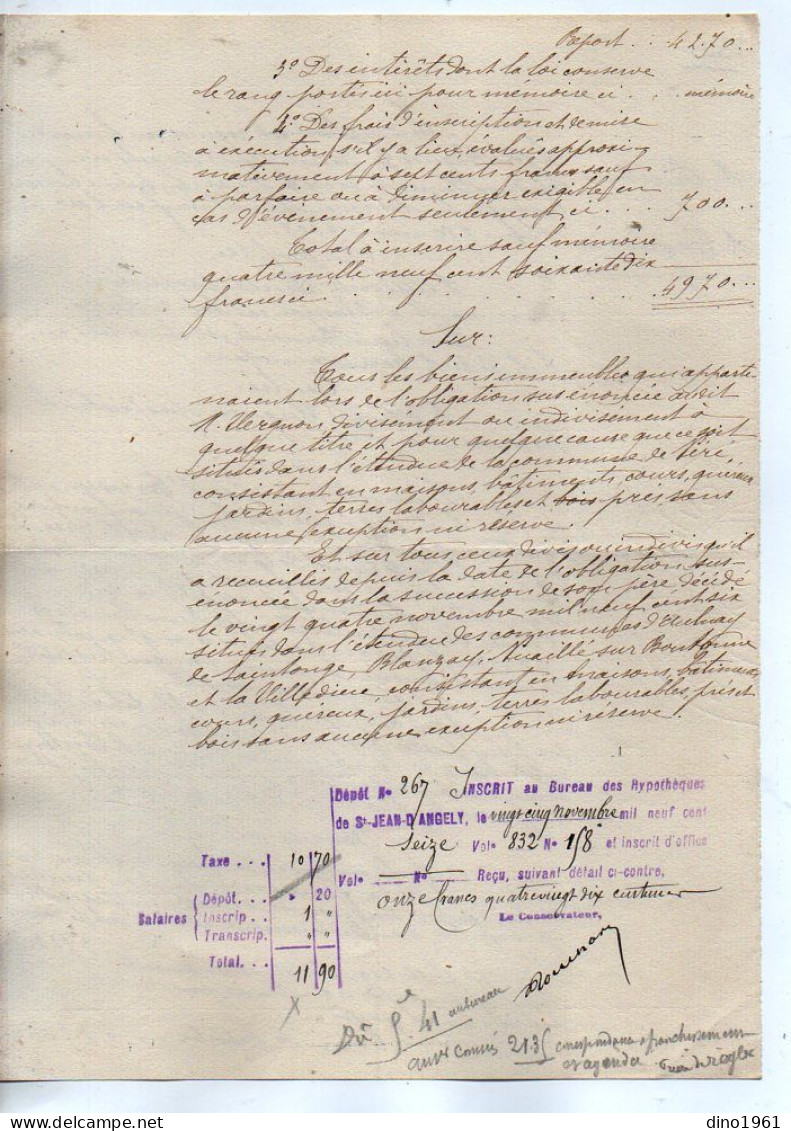 Report . . 4270 . . .
3° Des intérêts dont la loi conserve
le rang portés ici pour mémoire ci . . mémoire
4° Des frais d'inscription et de mise
à exécution, s'il y a lieu, évalués approxi-
mativement à sept cents francs sauf
à parfaire ou à diminuer exigibles en
cas d'événement seulement, ci . . . 700 . . .
Total à inscrire sauf mémoire
quatre mille neuf cent soixante dix
francs ci . . . . . . . 4970 . . .
Sur:
Tous les biens immeubles qui apparte-
naient lors de l'obligation sus énoncée audit
M. Vergnon divisément ou indivisément à
quelque titre et pour quelque cause que ce soit
situés dans l'étendue de la commune de Néré,
consistant en maisons, bâtiments, cours, quéreux
jardins, terres labourables et bois prés sans
aucune exception ni réserve.
Et sur tous ceux divis ou indivis qu'il
a recueillis depuis la date de l'obligation sus-
énoncée dans la succession de son père décédé
le vingt quatre novembre mil neuf cent six
situés dans l'étendue des communes d'Aulnay
de Saintonge, Blanzay, Nuaillé sur Boutonne
et la Villedieu consistant en maisons, bâtiments
cours, quéreux, jardins, terres labourables, prés et
bois sans aucune exception ni réserve.
Dépôt N° 267 INSCRIT au Bureau des Hypothèques
de St-JEAN-D'ANGELY, le vingt cinq novembre mil neuf cent
seize Vol. 832 N° 158 et inscrit d'office
Vol. N° Reçu, suivant détail ci-contre,
onze francs quatre vingt dix centimes
Le Conservateur,
Taxe . . . 10 70
Salaires
Dépôt. . . » 20
Inscrip . . 1 "
Transcrip. " "
Total. . . 11 90
X
Dû 41 au bureau
21.35 correspondance affranchissement
et agenda
dino1961